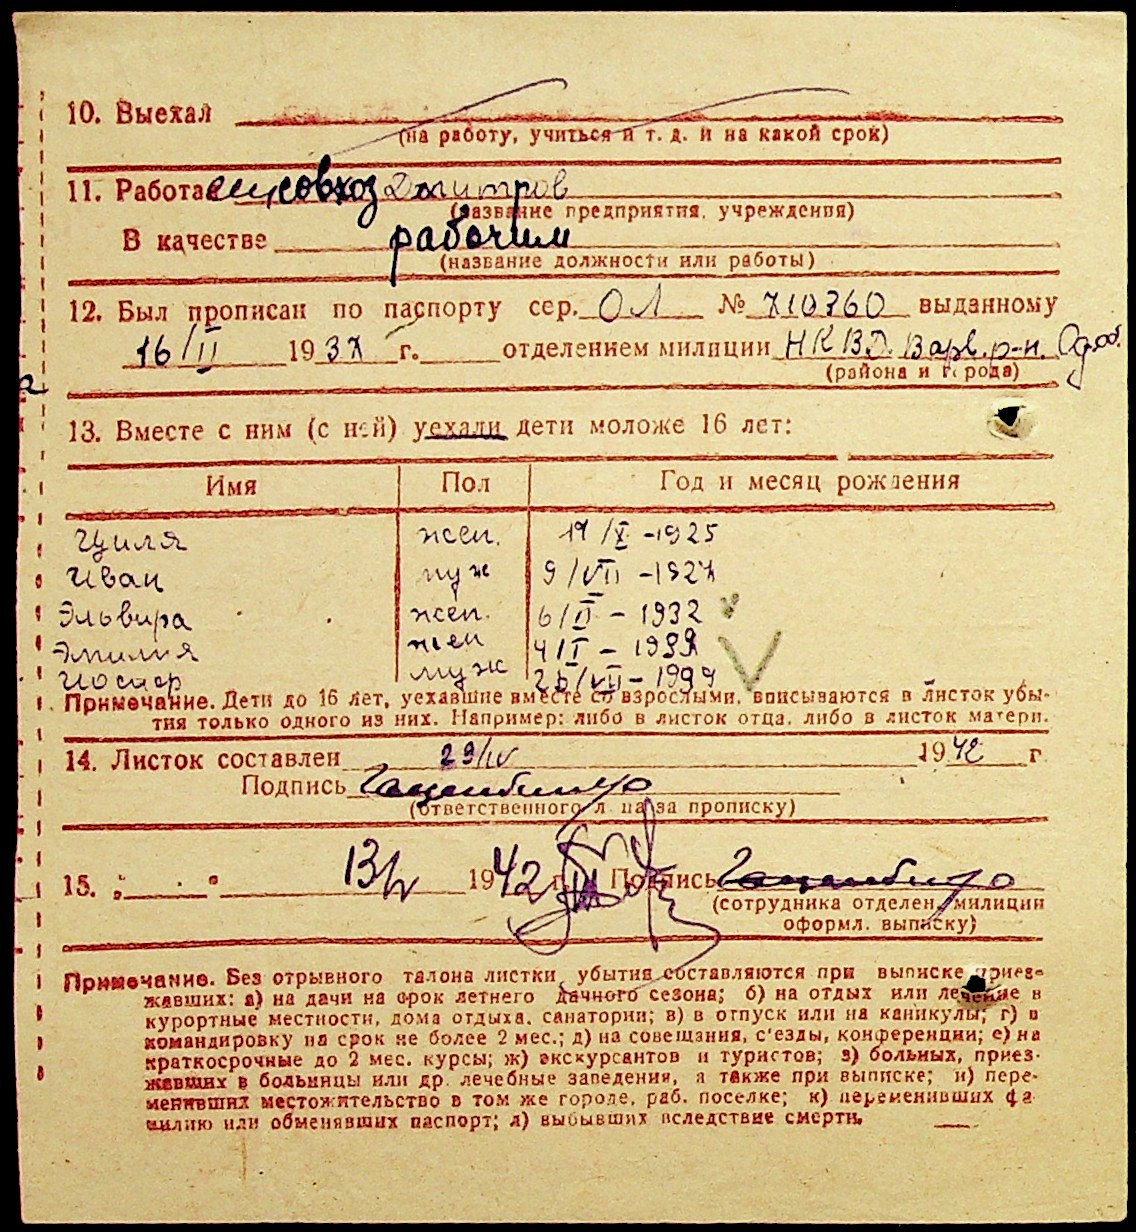 10. Выехал
(на работу, учиться и т. д. и на какой срок)
11. Работа совхоз Дмитров
(название предприятия, учреждения)
В качестве рабочим
(название должности или работы)
12. Был прописан по паспорту сер. ОЛ № 710760 выданному
16/II 1937 г. отделением милиции НКВД Варв. р-н. Одоб.
(района и города)
13. Вместе с ним (с ней) уехали дети моложе 16 лет:
Имя Пол Год и месяц рождения
Циля жен. 19/X -1925
Иван муж 9/VII -1927
Эльвира жен. 6/II - 1932
Эмилия жен 4/I - 1939
Иосиф муж 26/VII - 1999
Примечание. Дети до 16 лет, уехавшие вместе со взрослыми, вписываются в листок убы-
тия только одного из них. Например: либо в листок отца, либо в листок матери.
14. Листок составлен 29/IV 1942 г
Подпись
(ответственного л ца за прописку)
15. „ " 13/V 1942 г. Подпись
(сотрудника отделен. милиции
оформл. выписку)
Примечание. Без отрывного талона листки убытия составляются при выписке приез-
жавших: а) на дачи на срок летнего дачного сезона; б) на отдых или лечение в
курортные местности, дома отдыха, санатории; в) в отпуск или на каникулы; г) в
командировку на срок не более 2 мес.; д) на совещания, с'езды, конференции; е) на
краткосрочные до 2 мес. курсы; ж) экскурсантов и туристов; з) больных, приез-
жавших в больницы или др. лечебные заведения, а также при выписке; и) пере-
менивших местожительство в том же городе, раб. поселке; к) переменивших фа-
милию или обменявших паспорт; л) выбывших вследствие смерти.